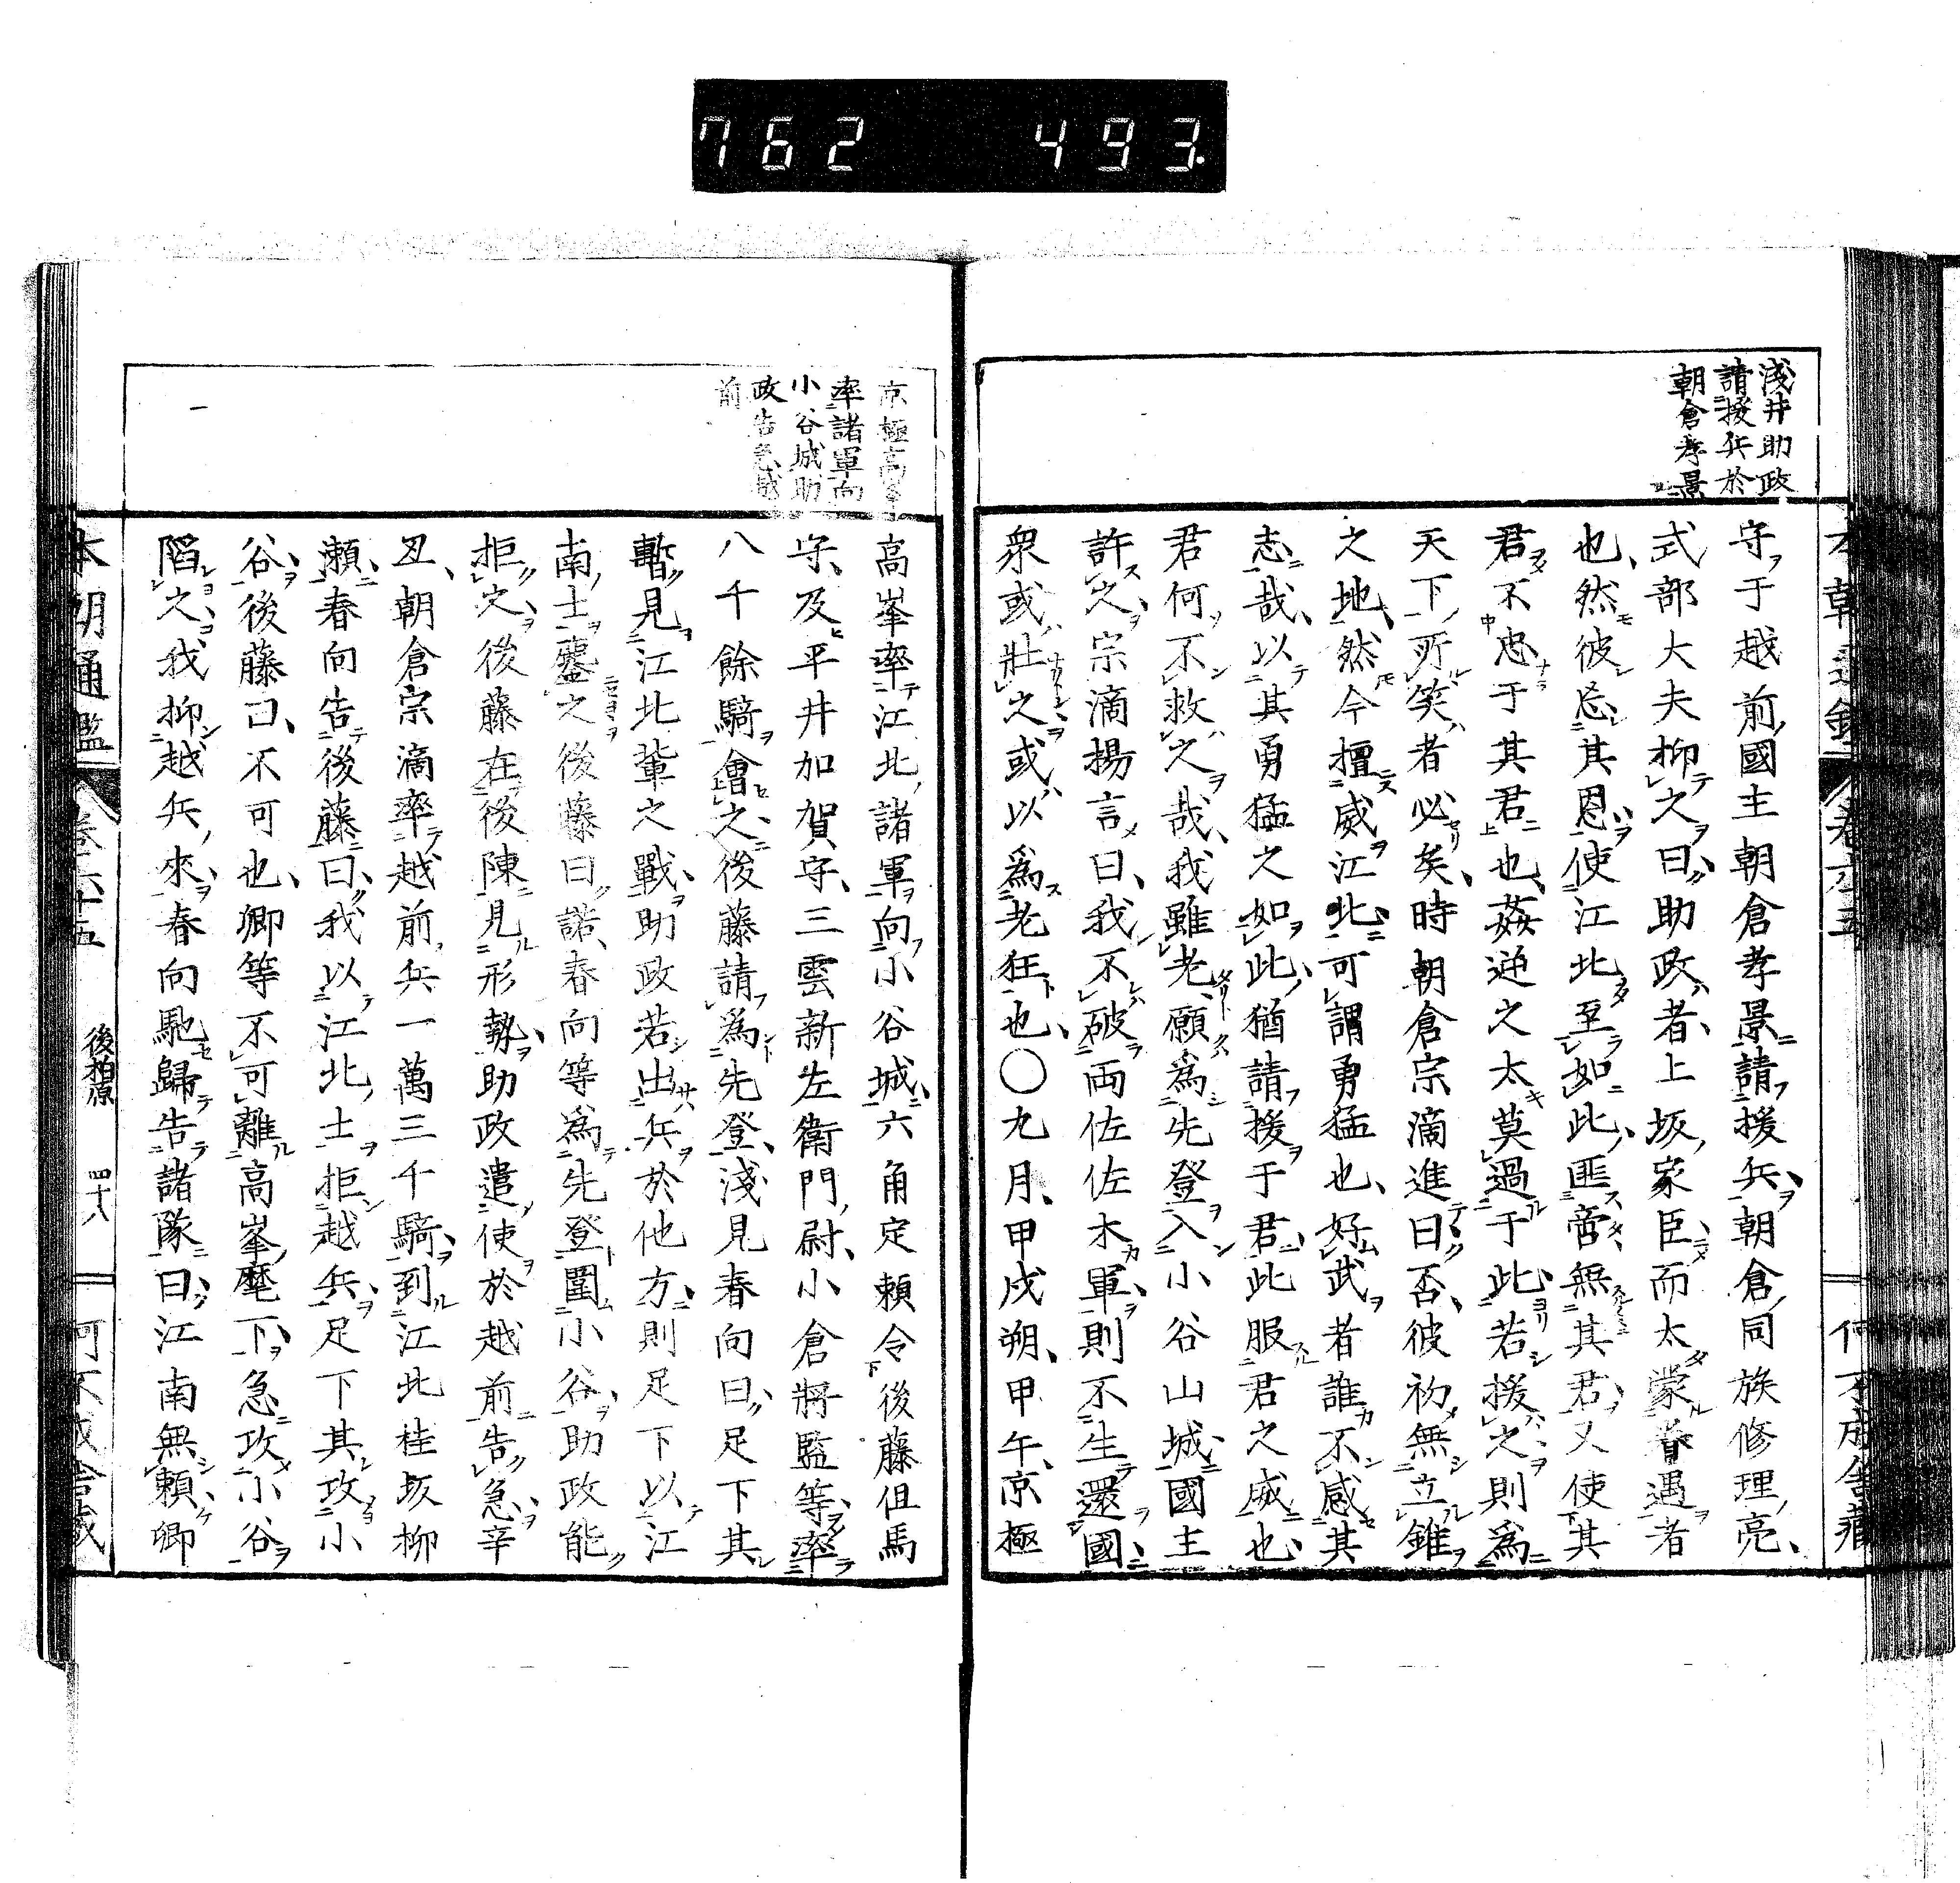 762 493
淺井助政
請援兵於
朝倉孝景
守于越前國主朝倉孝景請援兵朝倉同族修理亮
式部大夫抑之曰助政者上坂家臣而太蒙眷遇者
也然彼忘其恩使江北至如此匪啻無其君又使其
君不忠于其君也姦逆之太莫過于此若援之則爲
天下所笑者必矣時朝倉宗滴進曰否彼初無立錐
之地然今擅威江北可謂勇猛也好武者誰不感其
志哉以其勇猛之如此猶請援于君此服君之威也
君何不救之哉我雖老願爲先登入小谷山城國主
許之宗滴揚言曰我不破両佐佐木軍則不生還國
衆或壯之或以爲老狂也〇九月甲戌朔甲午京極
京極高峯
率諸軍向
小谷城助
政告急越
前
高峯率江北諸軍向小谷城六角定頼令後藤但馬
守及平井加賀守三雲新左衛門尉小倉將監等率
八千餘騎會之後藤請爲先登淺見春向曰足下其
暫見江北輩之戰助政若出兵於他方則足下以江
南士鏖之後藤曰諾春向等爲先登圍小谷助政能
拒之後藤在後陳見形勢助政遣使於越前告急辛
丑朝倉宗滴率越前兵一萬三千騎到江北桂坂柳
瀬春向告後藤曰我以江北士拒越兵足下其攻小
谷後藤曰不可也卿等不可離高峯麾下急攻小谷
陷之我抑越兵來春向馳歸告諸隊曰江南無頼卿
本朝通鑑 卷六十五 後柏原 四十八